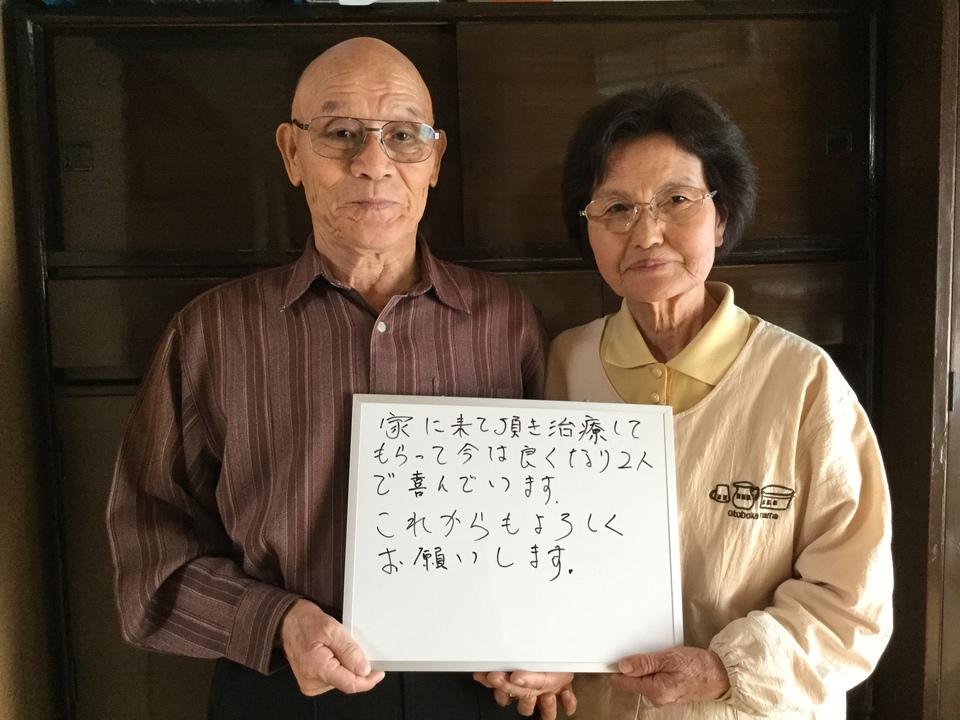 家に来て頂き治療して
もらって今は良くなり2人
で喜んでいます.
これからもよろしく
お願いします.
otoboke nama